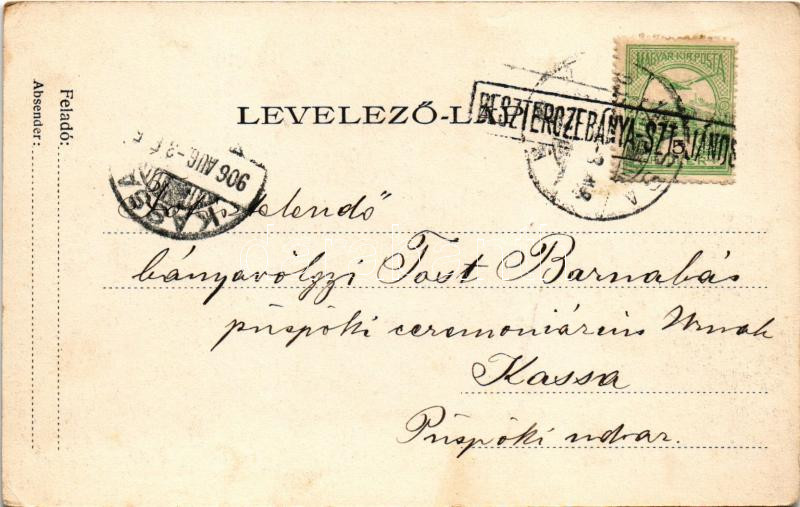 MAGYAR KIR. POSTA
LEVELEZŐ-L
BESZTERCZEBÁNYA-SZT-JÁNOS
5
Feladó:
Absender:
906 AUG.-3
KASSA
bányavölgyi Tost Barnabás
püspöki ceremoniárius Urnak
Kassa
Püspöki udvar.